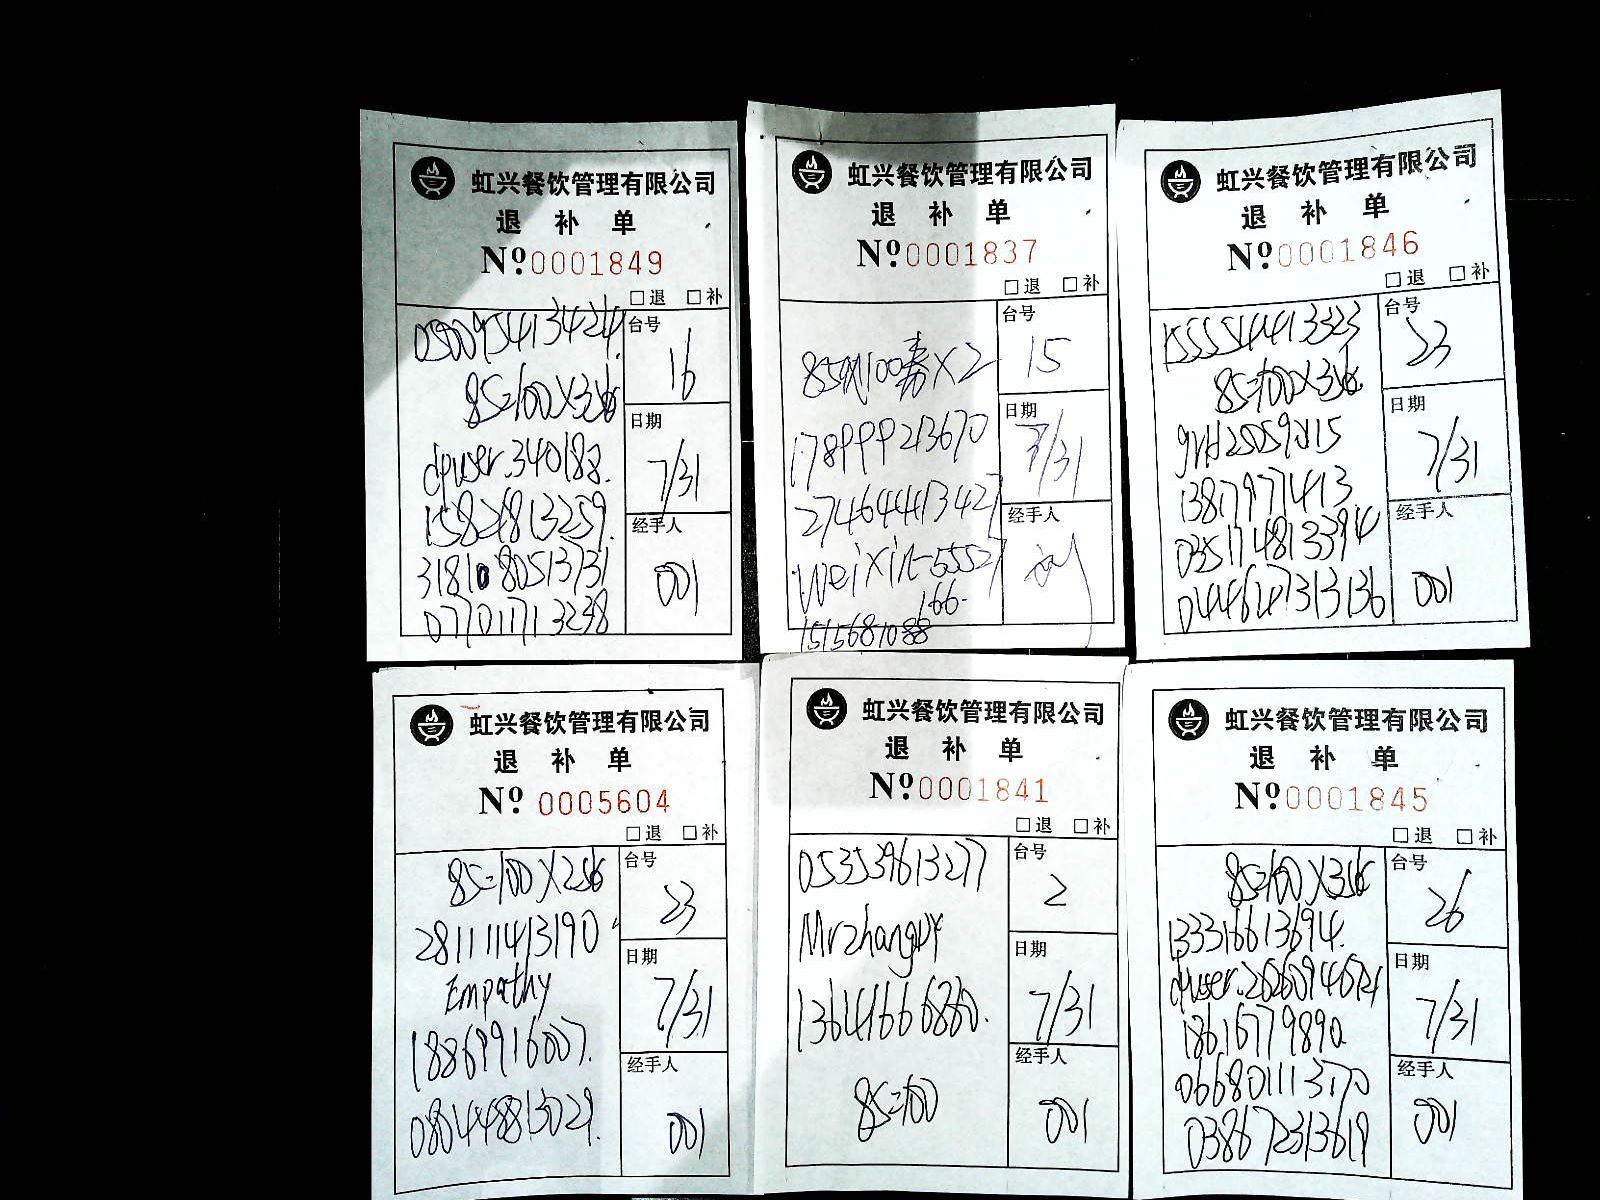 虹兴餐饮管理有限公司
退 补 单
№.0001849
□退 □补
050095413424
台号
16
85=100×3张
日期
dpuser.340188.
7/31
15821813259.
经手人
3181080513731
001
077011713238
虹兴餐饮管理有限公司
退 补 单
№.0001837
□退 □补
台号
15
×2
日期
178999213670
7/31
274644413427
经手人
weixin-55527
166.
1515681088
虹兴餐饮管理有限公司
退 补 单
№.0001846
□退 □补
台号
23
85=100×3张
日期
7/31
1387971413
经手人
035174813394
001
虹兴餐饮管理有限公司
退 补 单
№.0005604
□退 □补
85=100×2张
台号
23
281111413190
日期
Empathy
7/31
18869916007.
经手人
0804448813029.
001
虹兴餐饮管理有限公司
退 补 单
№.0001841
□退 □补
053539613277
台号
2
Mrzhang
日期
13641666860.
7/31
经手人
85=100
001
虹兴餐饮管理有限公司
退 补 单
№.0001845
□退 □补
85=100×3张
台号
26
133316613694.
日期
7/31
18616779890.
经手人
066801113170
001
038672313619